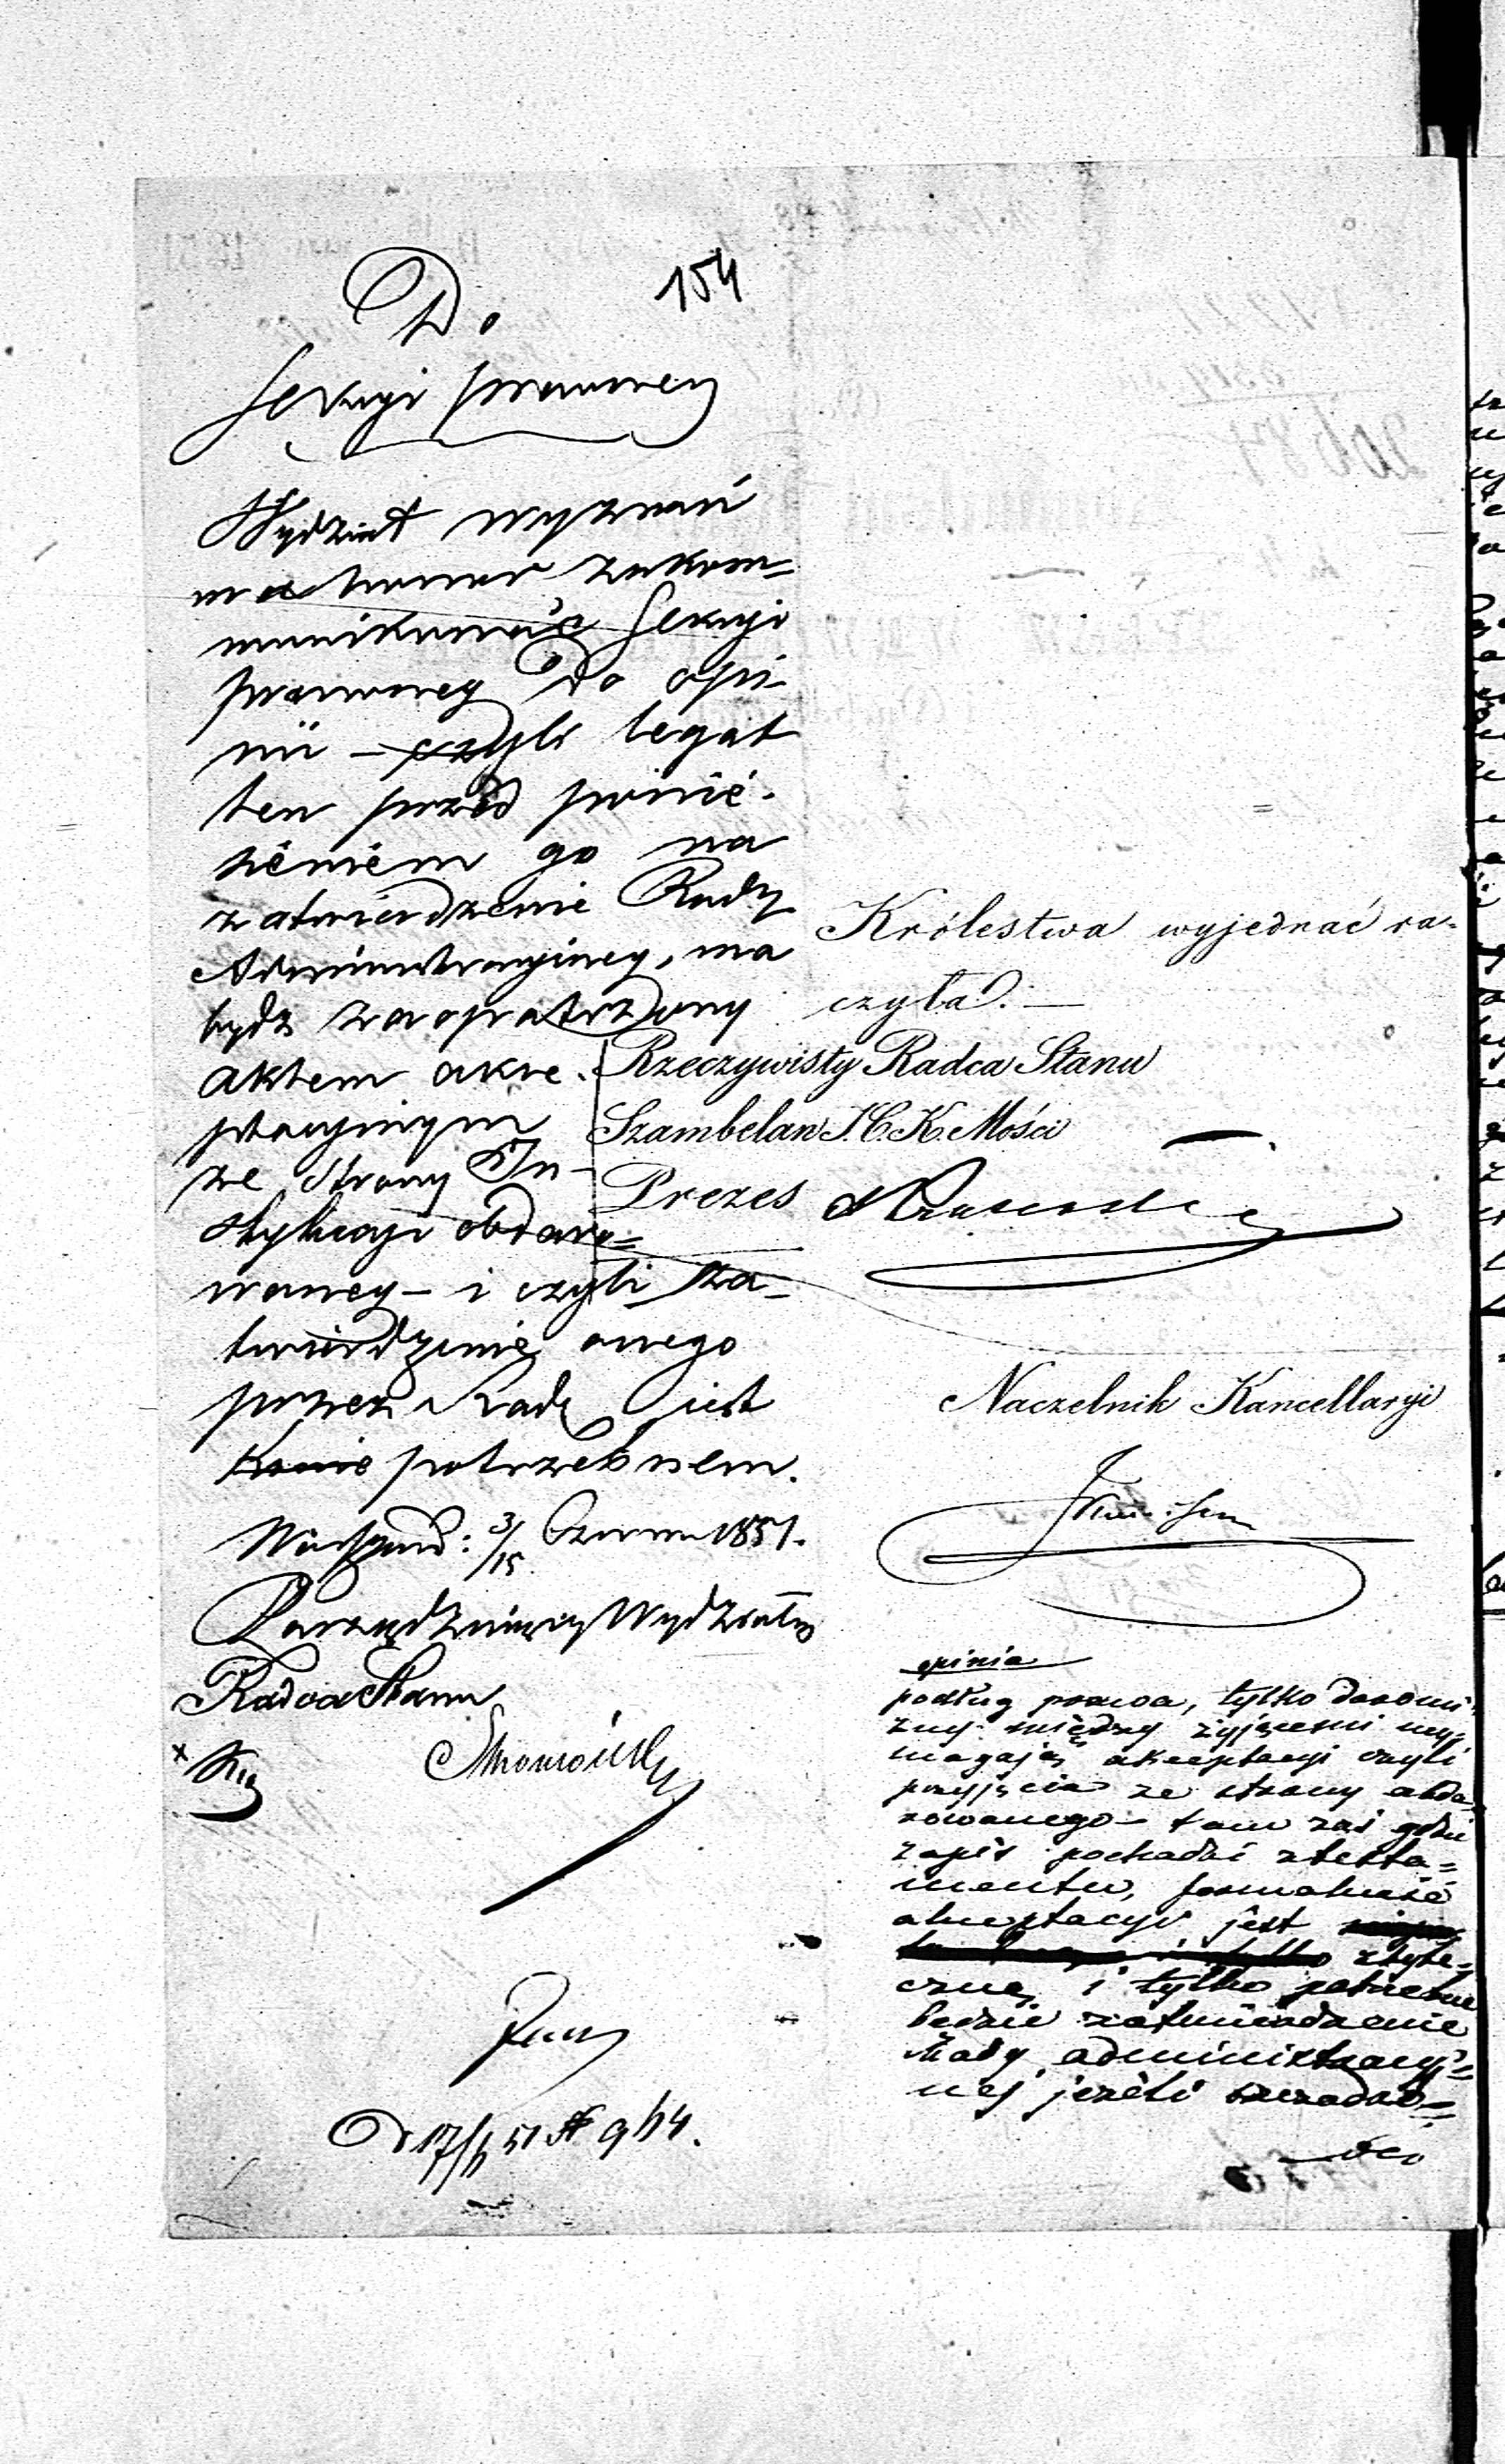 154
Do
Sekcyi prawney
Wydział wyznań
ma honor zakom=
munikować Sekcyi
prawney do opi-
nii – czyli legat
ten przed ponie-
sieniem go na
zatwierdzenie Rady
Administracyiney, ma
bydz zaopatrzony
aktem akce-
ptacyinym
ze strony In-
stytucyi obdaro=
waney – i czyli za-
twierdzenie onego
przez Radę jest
potrzebnem.
Warszawa: 3/15 Czerwca 1851.
Zarządzaiący Wydziałem
Radca Stanu
Królestwa wyjednać ra-
czyła. –
Rzeczywisty Radca Stanu
Szambelan J. C. K. Mości
Prezes
Naczelnik Kancellaryi
opinia
podług prawa, tylko darowi-
zny między żyjącemi wy-
magają akceptacyi czyli
przyjęcia ze strony obda-
rowanego – tam zaś gdzie
zapis pochodzi z testa=
mentu, formalność
akceptacyi jest
zbyte-
czną i tylko potrzebne
będzie zatwierdzenie
Rady administracyj=
nej jeżeli
D 17/6 51 N 944.